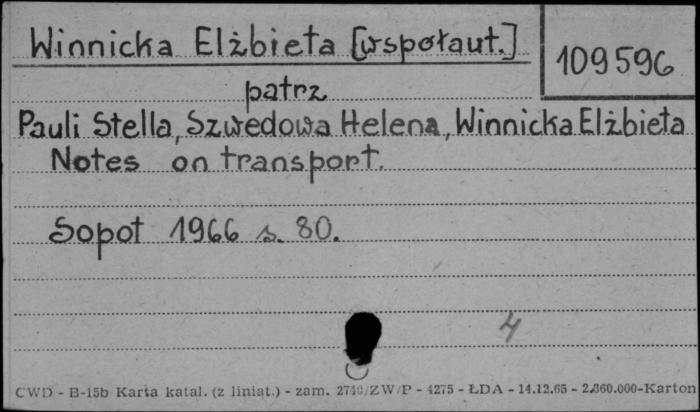 Winnicka Elżbieta [współaut.]
109596
patrz
Pauli Stella, Szwedowa Helena, Winnicka Elżbieta
Notes on transport.
Sopot 1966 s. 80.
4
CWD - B-15b Karta katal. (z liniat.) - zam. 2740/ZW/P - 4275 - ŁDA - 14.12.65 - 2.860.000-Karton